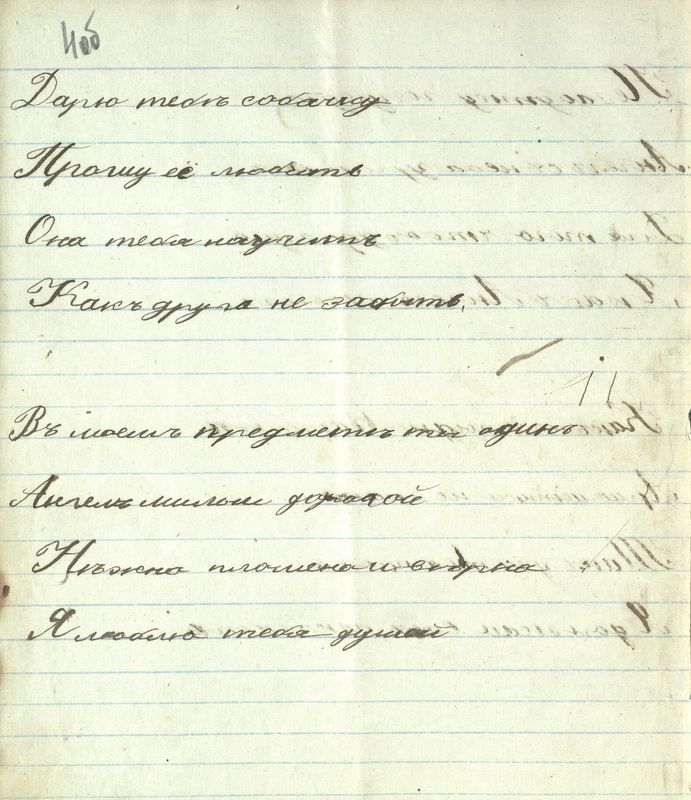 4об
Дарю тебѣ собачку
Прошу её любить
Она тебя научитъ
Какъ друга не забыть.
Въ моемъ предметѣ ты одинъ
Ангелъ милыи дорогой
Нѣжно пламено и вѣрно
Я люблю тебя душой